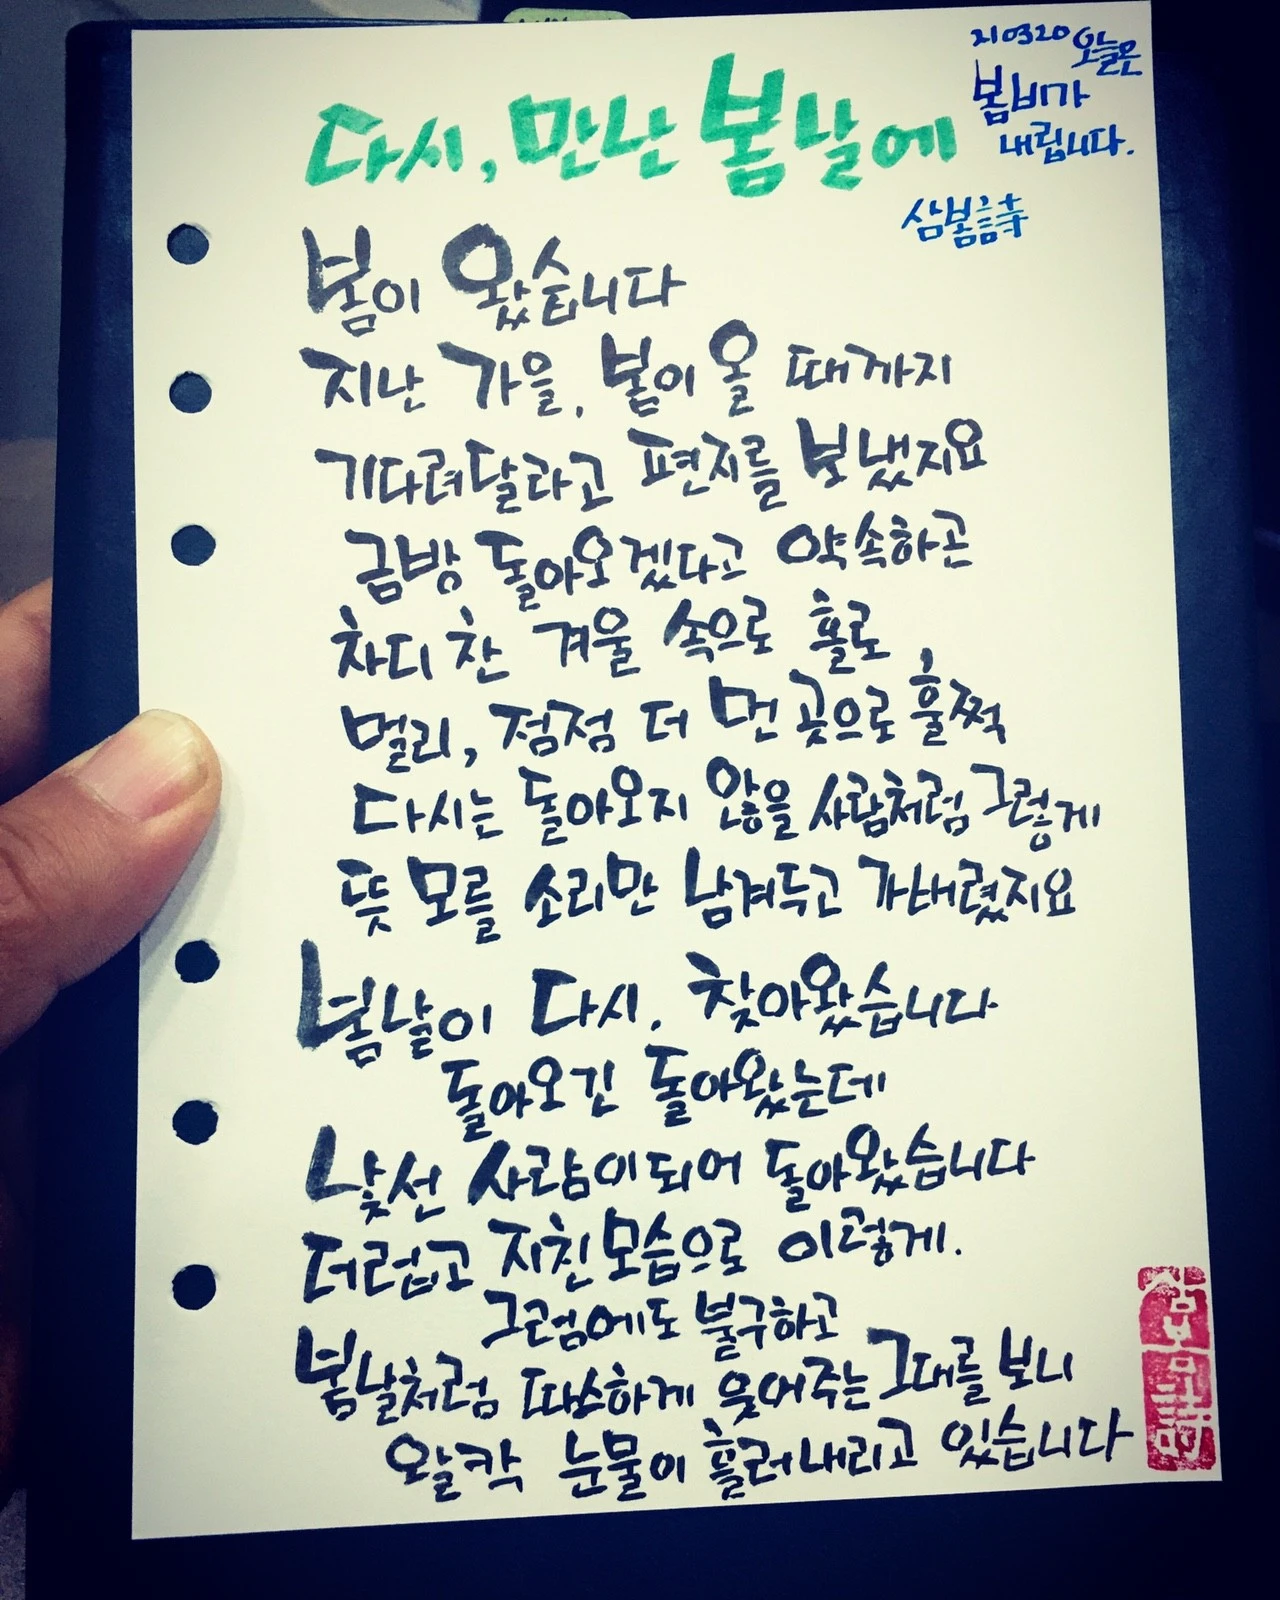 210320 오늘은
봄비가
내립니다.
다시, 만난 봄날에
삼봄詩
봄이 왔습니다
지난 가을, 봄이 올 때까지
기다려달라고 편지를 보냈지요
금방 돌아오겠다고 약속하곤
차디찬 겨울 속으로 홀로
멀리, 점점 더 먼 곳으로 훌쩍
다시는 돌아오지 않을 사람처럼 그렇게
뜻 모를 소리만 남겨두고 가버렸지요
봄날이 다시, 찾아왔습니다
돌아오긴 돌아왔는데
낯선 사람이 되어 돌아왔습니다
더럽고 지친 모습으로 이렇게.
그럼에도 불구하고
봄날처럼 따스하게 웃어주는 그대를 보니
왈칵 눈물이 흘러내리고 있습니다
삼봄詩